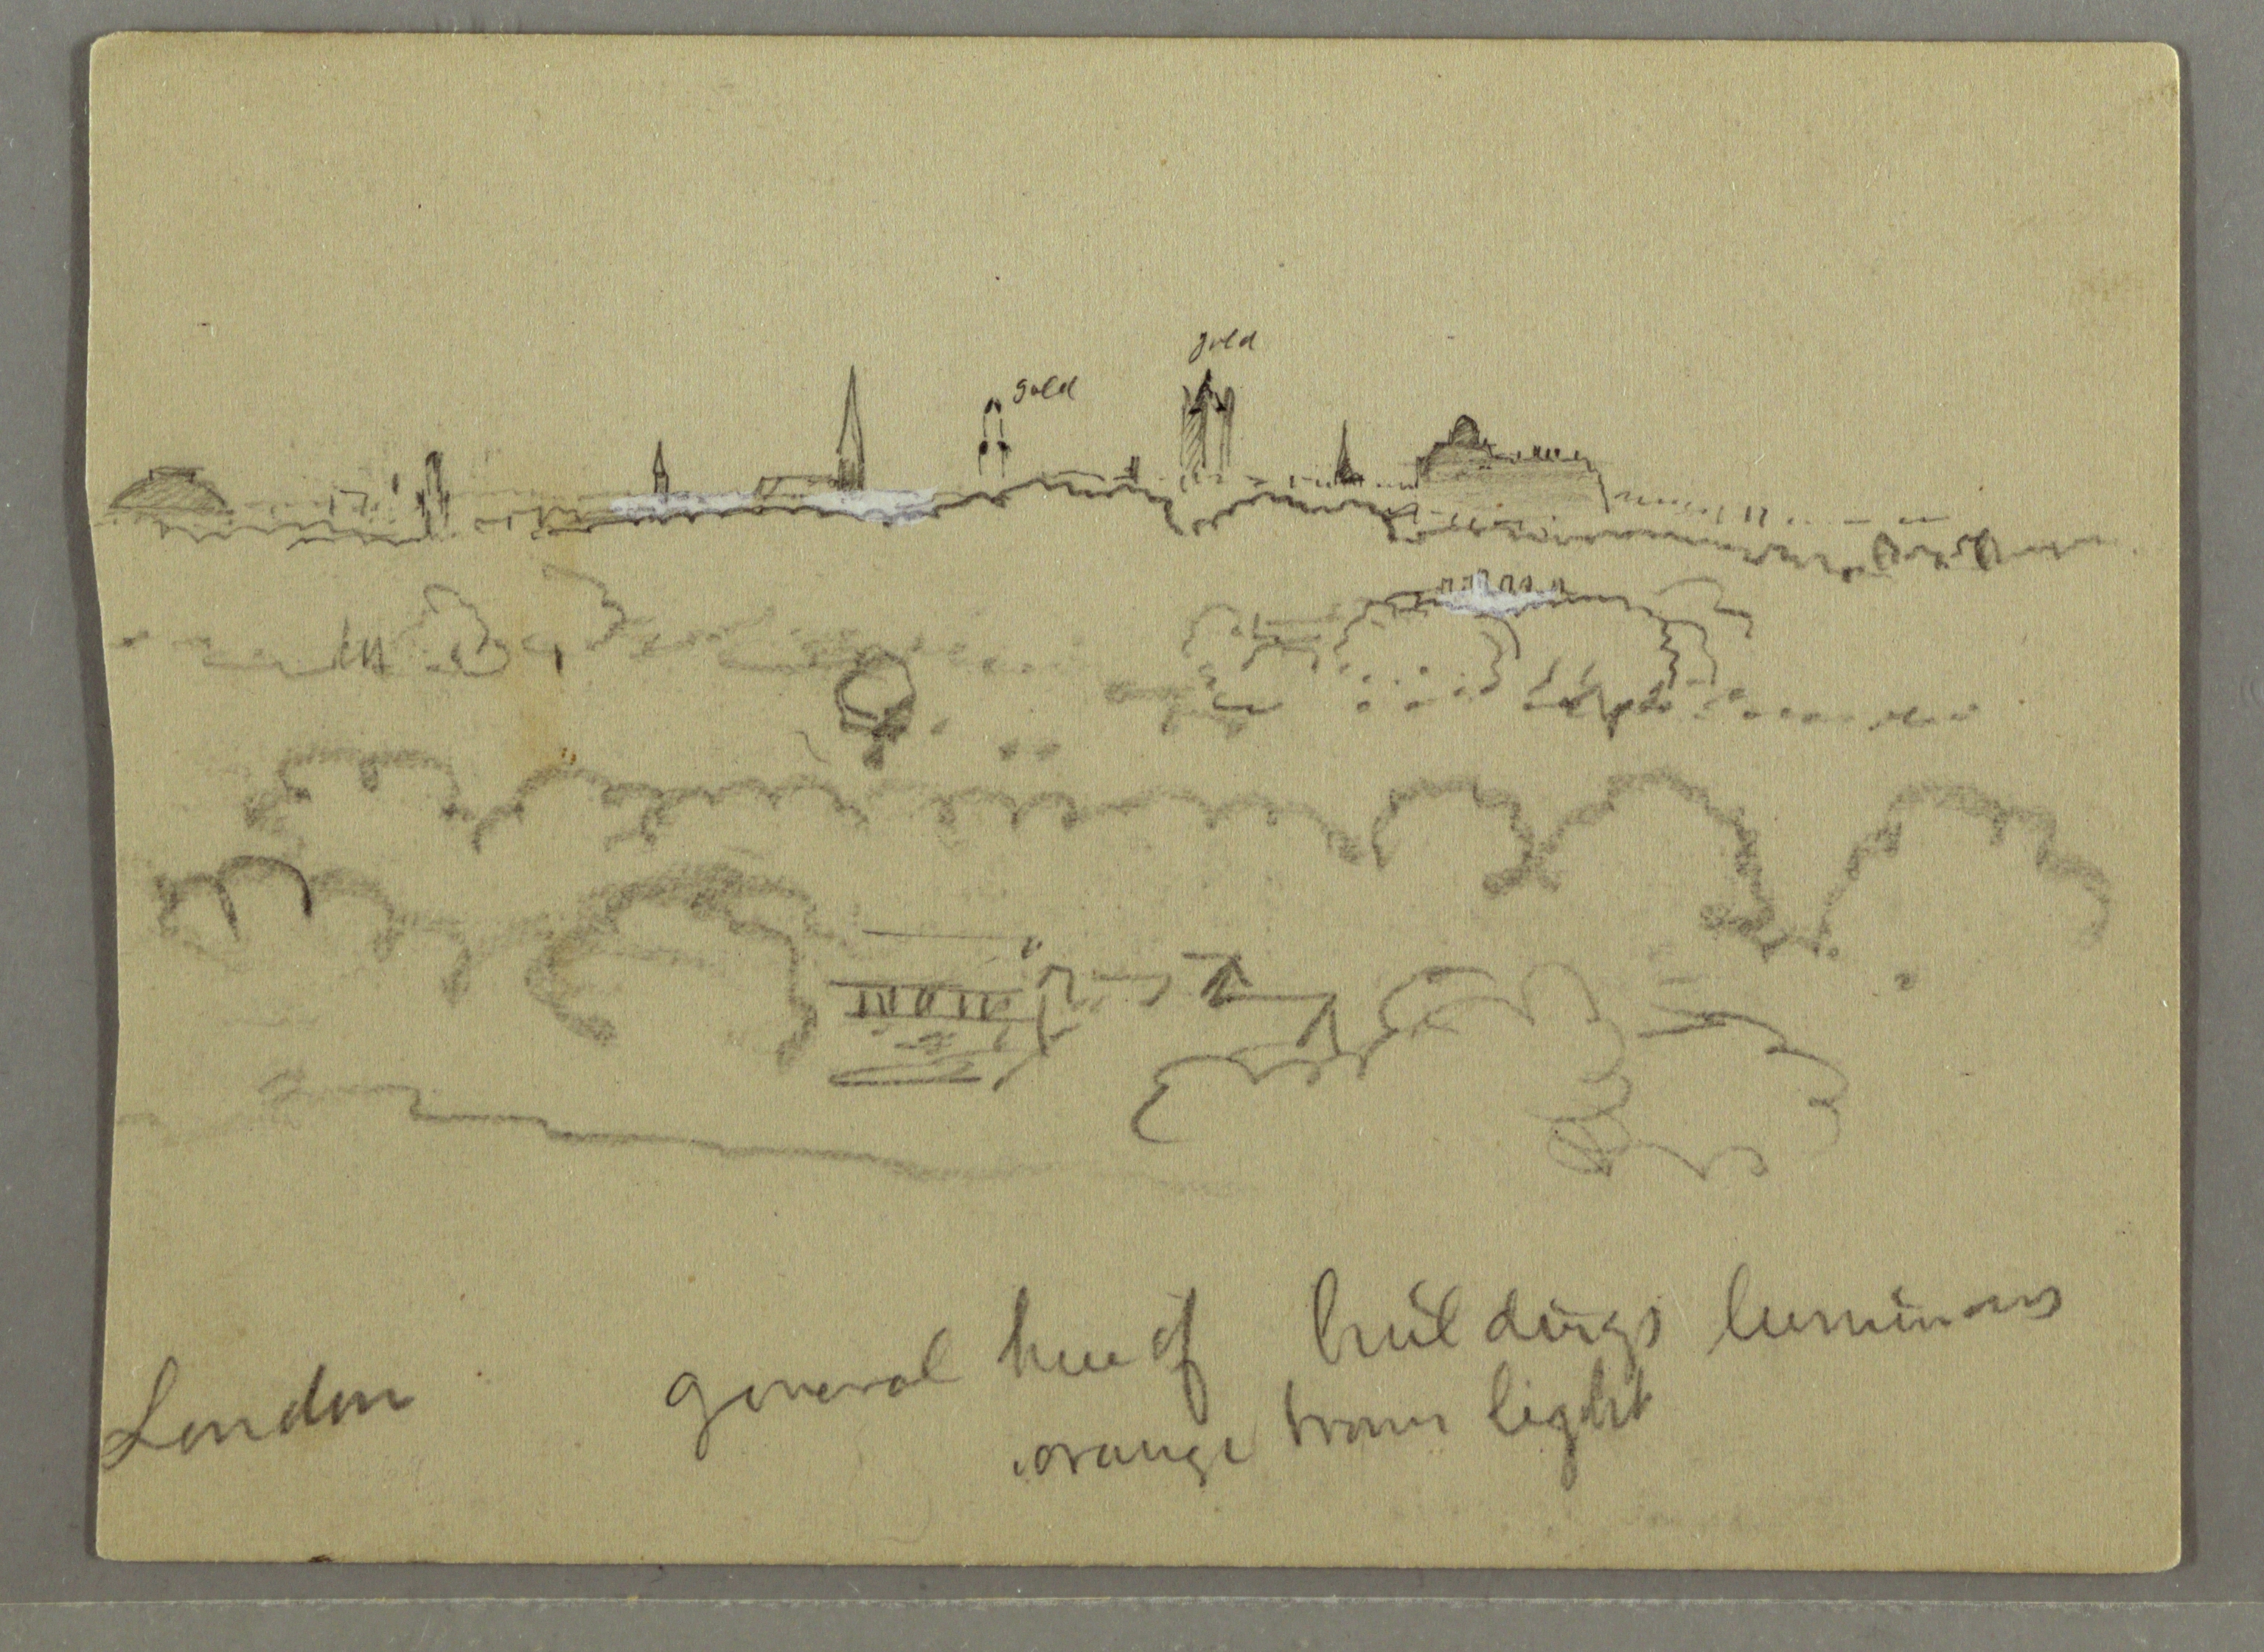 gold
gold
London
general hue of buildings luminous
orange brown light